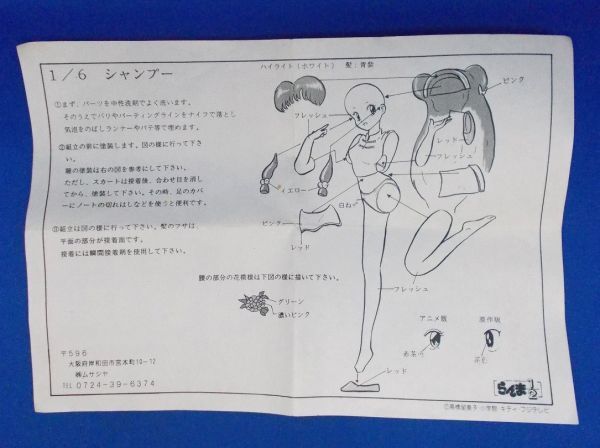 1/6 シャンプー
①まず、パーツを中性洗剤でよく洗います。
そのうえでバリやパーティングラインをナイフで落とし
気泡をのばしランナーやパテ等で埋めます。
②組立の前に塗装します。図の様に行って下さ
い。
瞳の塗装は右の図を参考にして下さい。
ただし、スカートは接着後、合わせ目を消し
てから、塗装して下さい。その時、足のカバ
ーにノートの切れはしなどを使うと便利です。
③組立は図の様に行って下さい。髪のフサは、
平面の部分が接着面です。
接着には瞬間接着剤を使用して下さい。
腰の部分の花模様は下図の様に描いて下さい。
グリーン
濃いピンク
〒596
大阪府岸和田市宮本町10-12
㈱ムサシヤ
TEL 0724-39-6374
ハイライト(ホワイト)
髪:青紫
ピンク
フレッシュ
レッド
フレッシュ
イエロー
白ね
ピンク
レッド
フレッシュ
アニメ版
原作版
赤茶
レッド
らんま1/2
©高橋留美子 小学館 キティ・フジテレビ